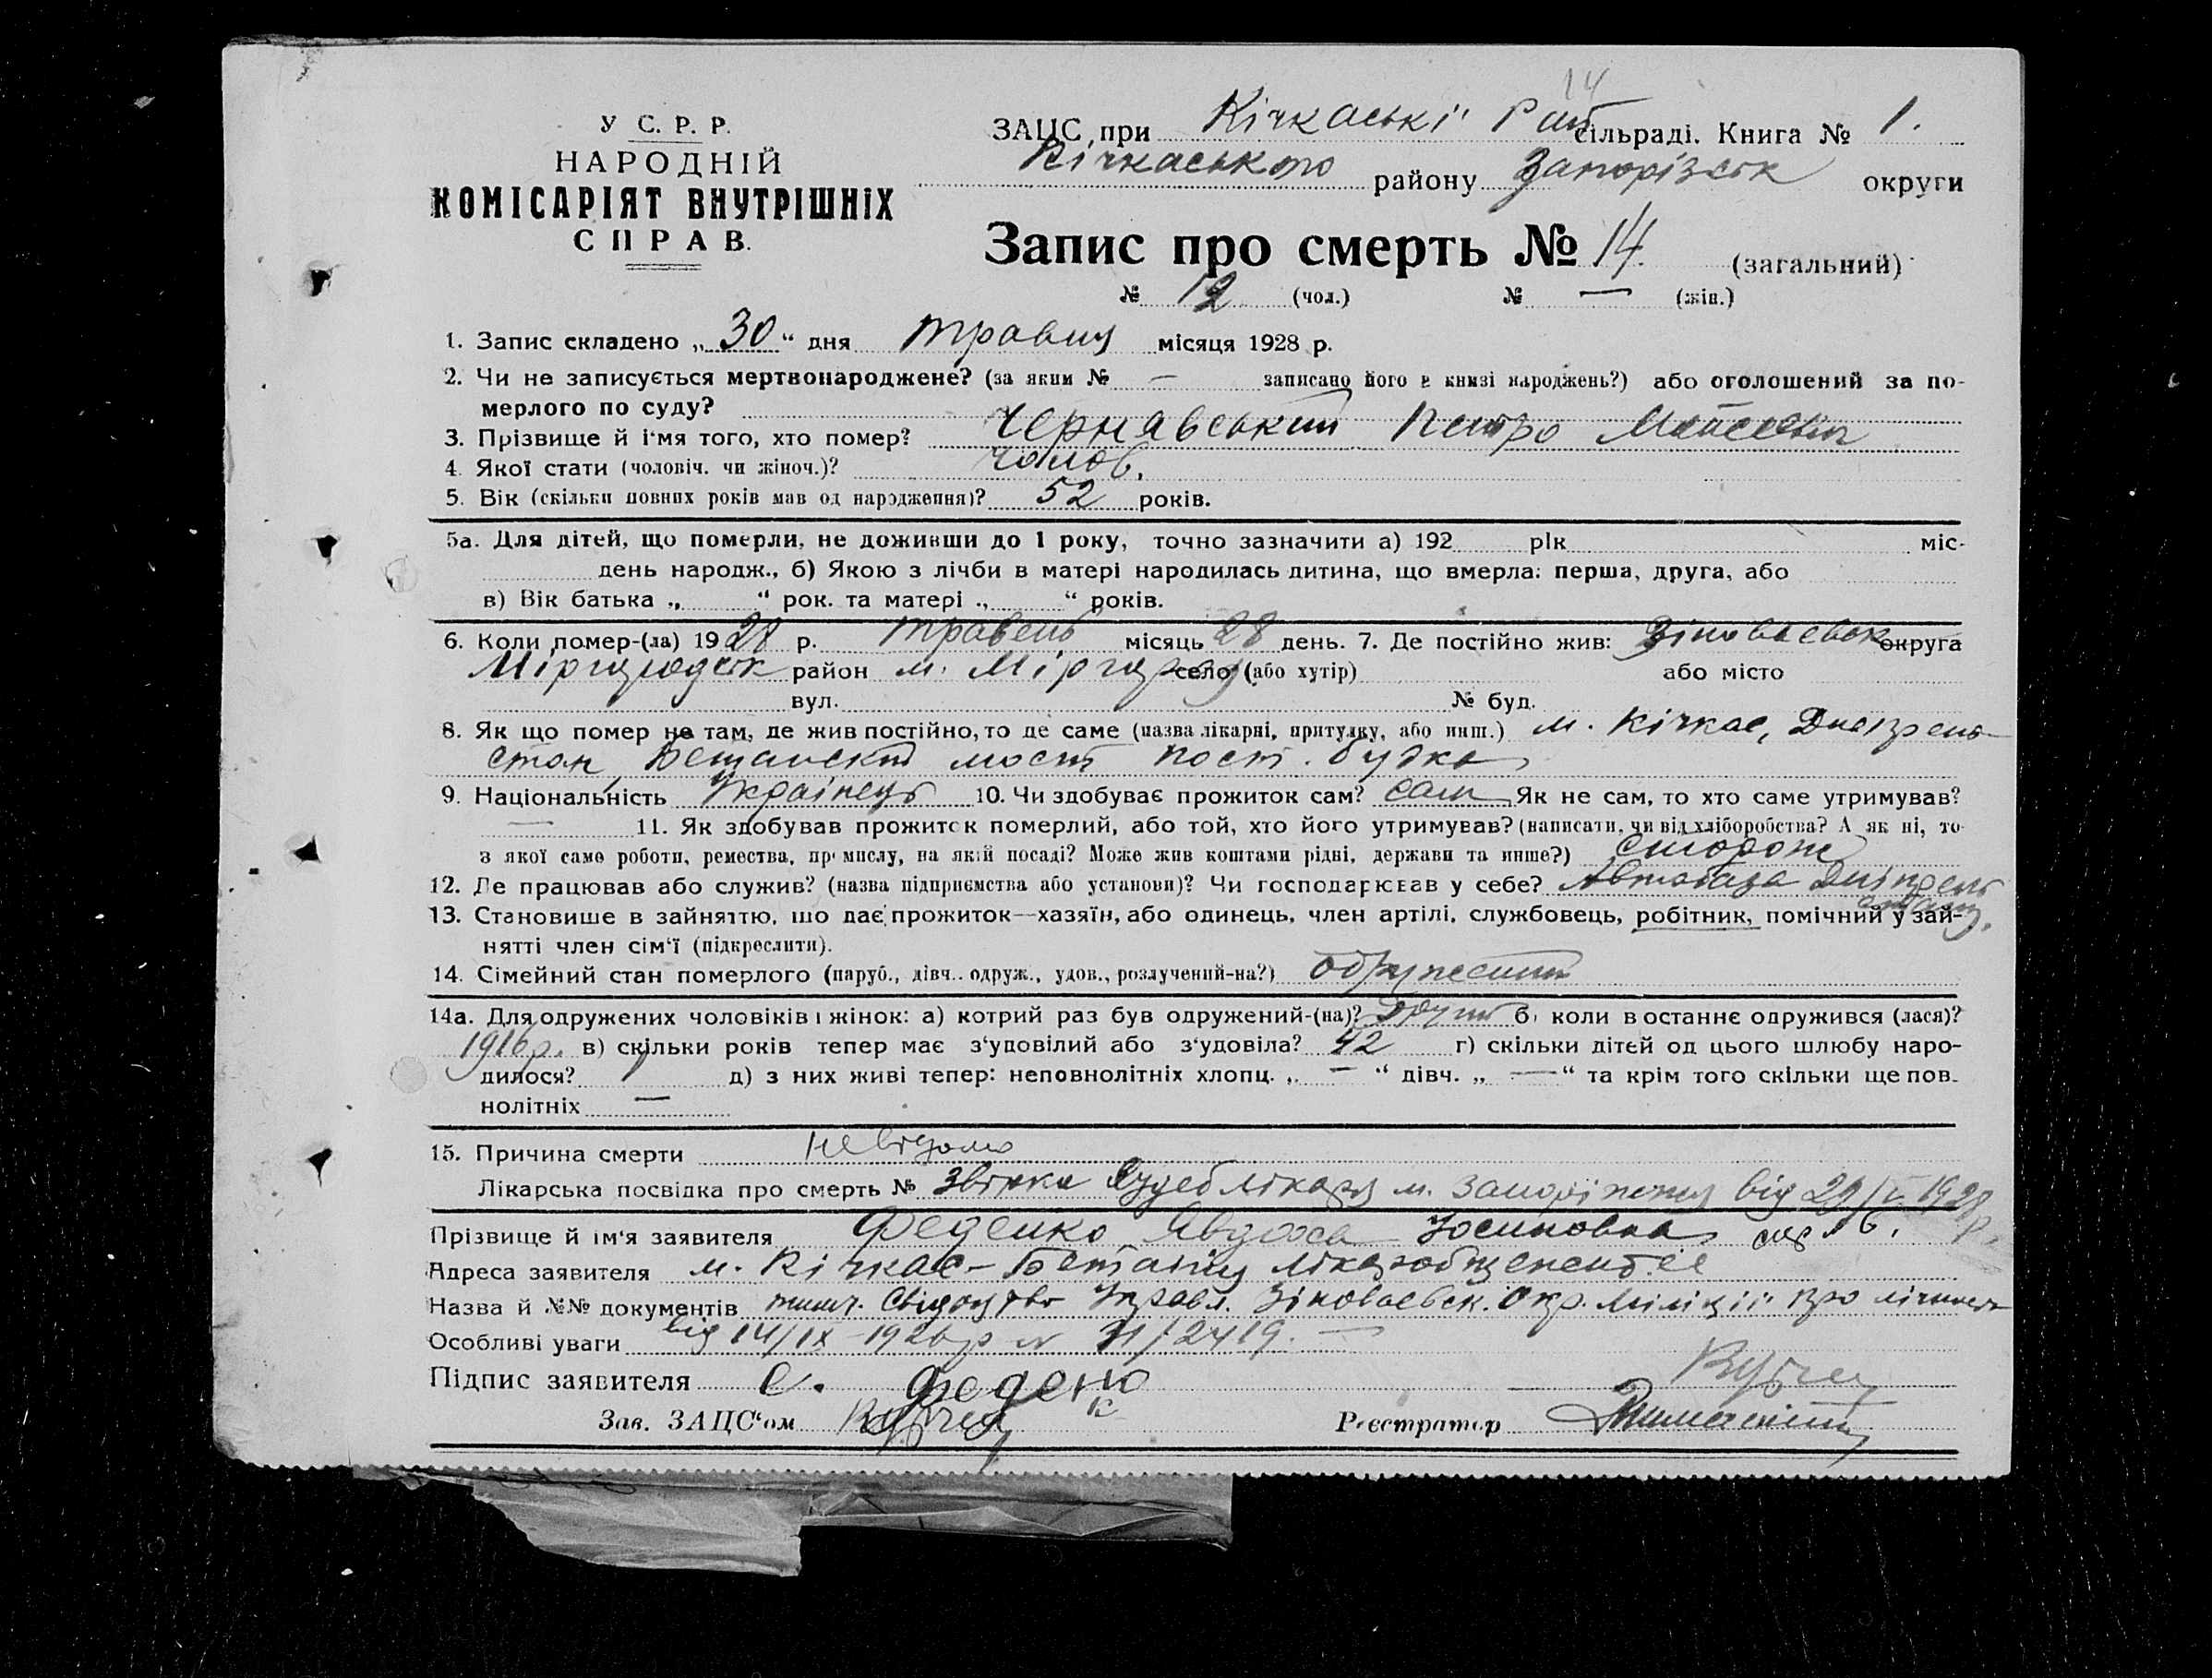 14
У С. Р. Р.
НАРОДНІЙ
КОМІСАРІЯТ ВНУТРІШНІХ
СПРАВ.
ЗАЦС при Кічкаські Рай сільраді. Книга № 1.
Кічкаського району Запорізськ округи
Запис про смерть № 14. (загальний)
№ 12 (чол.) № — (жін.)
1. Запис складено „30“ дня травня місяця 1928 р.
2. Чи не записується мертвонароджене? (за яким № — записано його в книзі народжень?) або оголошений за по-
мерлого по суду?
3. Прізвище й і'мя того, хто помер? Чернявський Петро
4. Якої стати (чоловіч. чи жіноч.)? чолов.
5. Вік (скільки повних років мав од народження)? 52 років.
5а. Для дітей, що померли, не доживши до 1 року, точно зазначити а) 192 рік міс-
день народж., б) Якою з лічби в матері народилась дитина, що вмерла: перша, друга, або
в) Вік батька „ “ рок. та матері „ “ років.
6. Коли помер-(ла) 1928 р. травень місяць 28 день. 7. Де постійно жив: Зіновьевськ округа
район м. село (або хутір) або місто
вул. № буд.
8. Як що помер не там, де жив постійно, то де саме (назва лікарні, притулку, або инш.) м. Кічкас,
мост пост. будка
9. Національність Українець 10. Чи здобуває прожиток сам? сам Як не сам, то хто саме утримував?
— 11. Як здобував прожиток померлий, або той, хто його утримував? (написати, чи від хліборобства? А як ні, то
з якої саме роботи, ремества, промислу, на якій посаді? Може жив коштами рідні, держави та инше?) Сторож
12. Де працював або служив? (назва підприємства або установи)? Чи господарював у себе? Автобаза
13. Становише в зайняттю, що дає прожиток—хазяїн, або одинець, член артілі, службовець, робітник, помічний у зай-
нятті член сім'ї (підкреслити).
14. Сімейний стан померлого (паруб., дівч.. одруж., удов., розлучений-на?) одружений
14а. Для одружених чоловіків і жінок: а) котрий раз був одружений-(на)? другий б) коли в останнє одружився (лася)?
1916 р. в) скільки років тепер має з'удовілий або з'удовіла? 42 г) скільки дітей од цього шлюбу наро-
дилося? д) з них живі тепер: неповнолітніх хлопц. „ — “ дівч. „ — “ та крім того скільки ще пов-
нолітніх —
15. Причина смерти невідомо
Лікарська посвідка про смерть № м. Запоріжжя від 29/V 1928 р.
Прізвище й ім'я заявителя Феденко Явдоха
Адреса заявителя м. Кічкас
Назва й №№ документів Зіновьевськ. Окр. Міліції про
Особливі уваги від 14/IX 1926 р № 2419. —
Підпис заявителя Е. Феденко
Зав. ЗАЦС'ом Реєстратор